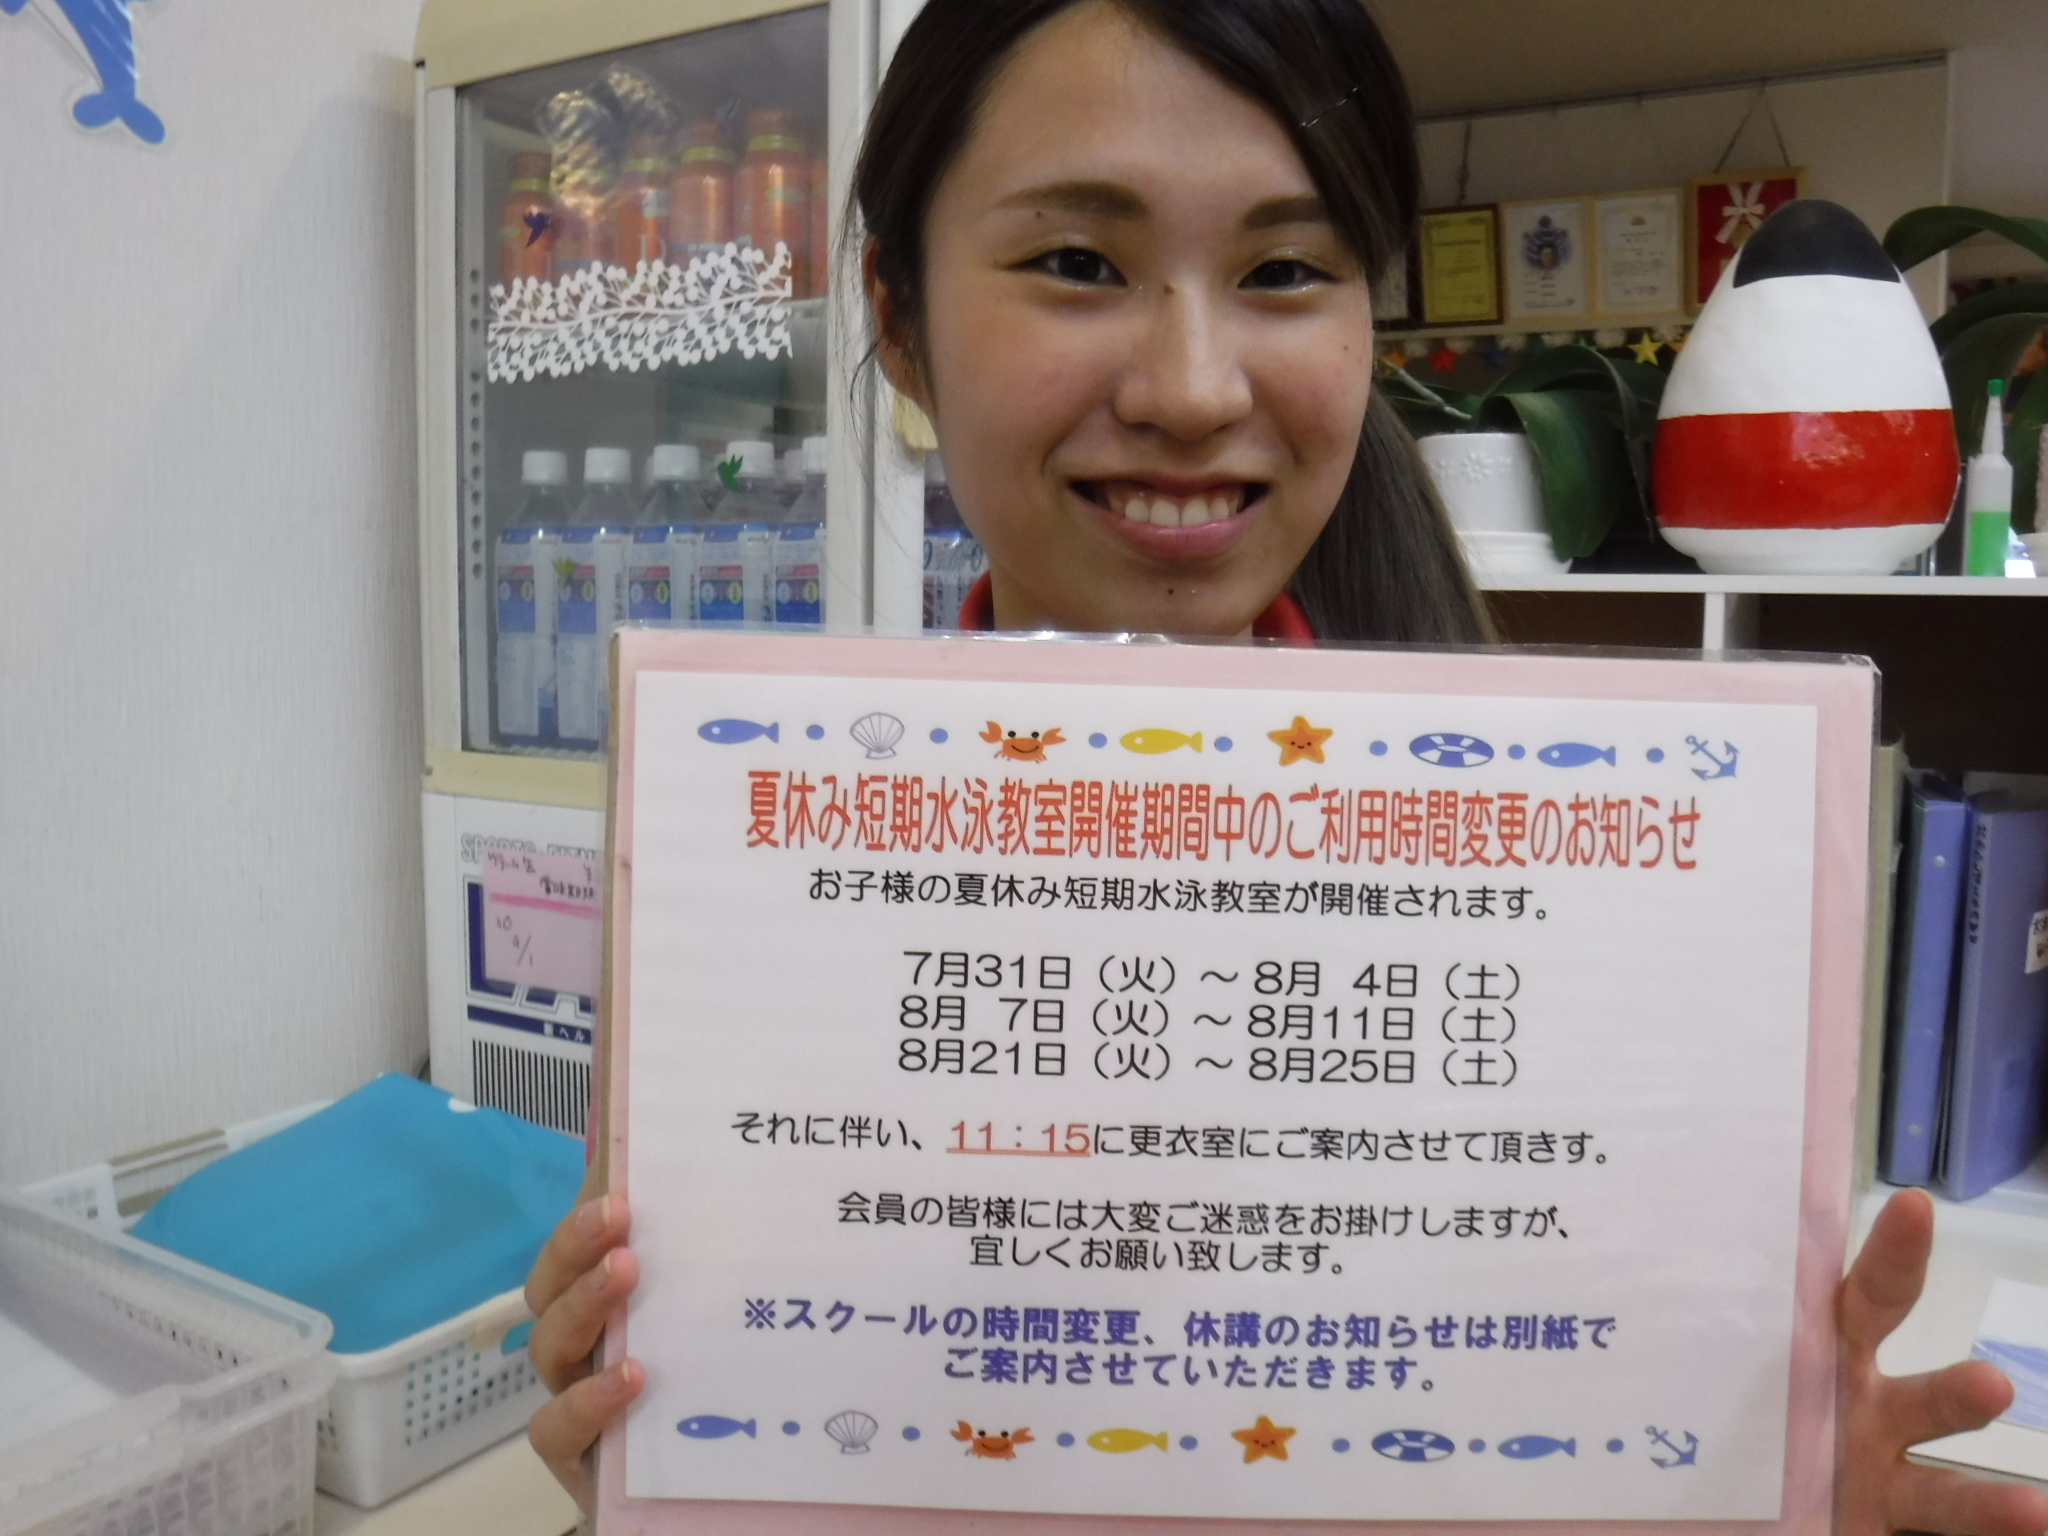 夏休み短期水泳教室開催期間中のご利用時間変更のお知らせ
お子様の夏休み短期水泳教室が開催されます。
7月31日（火）～8月 4日（土）
8月 7日（火）～8月11日（土）
8月21日（火）～8月25日（土）
それに伴い、11：15に更衣室にご案内させて頂きす。
会員の皆様には大変ご迷惑をお掛けしますが、
宜しくお願い致します。
※スクールの時間変更、休講のお知らせは別紙で
ご案内させていただきます。
賞味期限